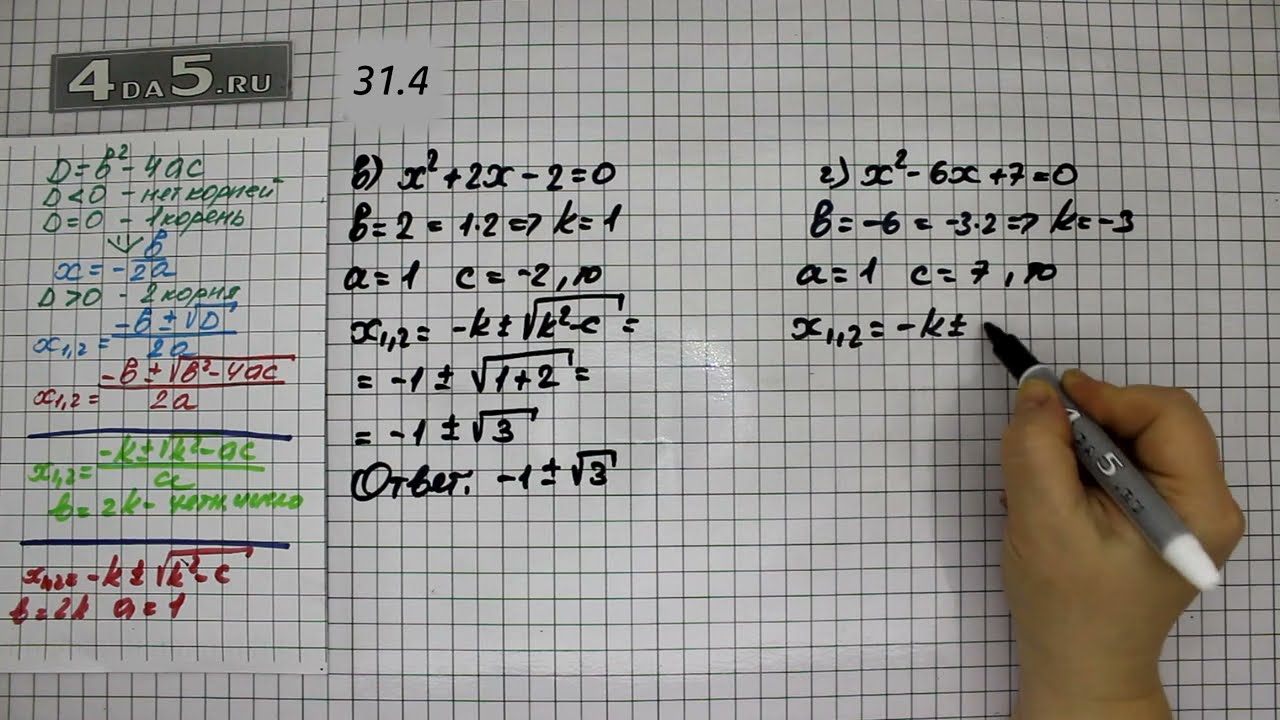 4DA5.RU
31.4
D = b² - 4ac
D < 0 - нет корней
D = 0 - 1 корень
x = - b/2a
D > 0 - 2 корня
x₁,₂ = (-b ± √D)/2a
x₁,₂ = (-b ± √(b² - 4ac))/2a
x₁,₂ = (-k ± √(k² - ac))/a
b = 2k - четн. число
x₁,₂ = -k ± √(k² - c)
b = 2k a = 1
в) x² + 2x - 2 = 0
b = 2 = 1·2 => k = 1
a = 1 c = -2, то
x₁,₂ = -k ± √(k² - c) =
= -1 ± √(1 + 2) =
= -1 ± √3
Ответ: -1 ± √3
г) x² - 6x + 7 = 0
b = -6 = -3·2 => k = -3
a = 1 c = 7, то
x₁,₂ = -k ±